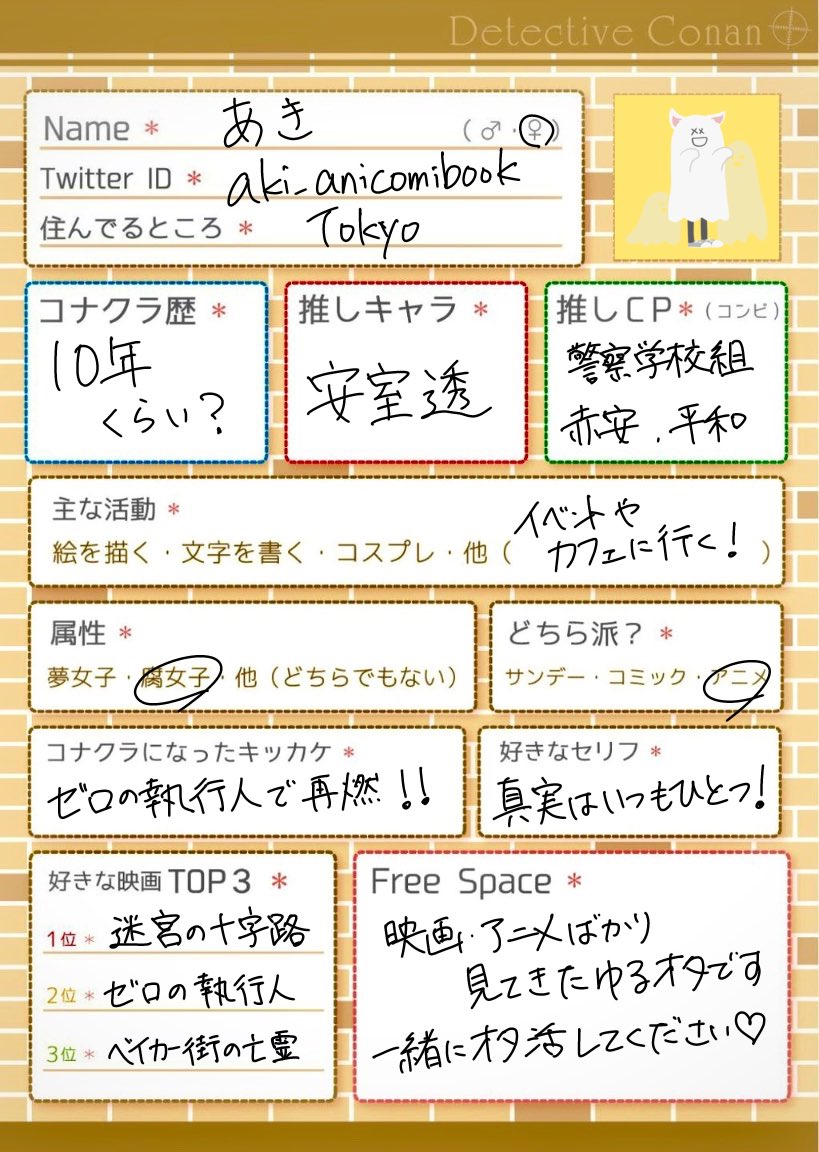 Detective Conan
Name * あき (♂・♀)
Twitter ID * aki_anicomibook
住んでるところ * Tokyo
コナクラ歴 *
10年
くらい?
推しキャラ *
安室透
推しCP* (コンビ)
警察学校組
赤安、平和
主な活動 *
絵を描く・文字を書く・コスプレ・他( イベントや
カフェに行く! )
属性 *
夢女子・腐女子・他(どちらでもない)
どちら派? *
サンデー・コミック・アニメ
コナクラになったキッカケ *
ゼロの執行人で再燃!!
好きなセリフ *
真実はいつもひとつ!
好きな映画TOP3 *
1位 * 迷宮の十字路
2位 * ゼロの執行人
3位 * ベイカー街の亡霊
Free Space *
映画・アニメばかり
見てきたゆるオタです
一緒にオタ活してください♡